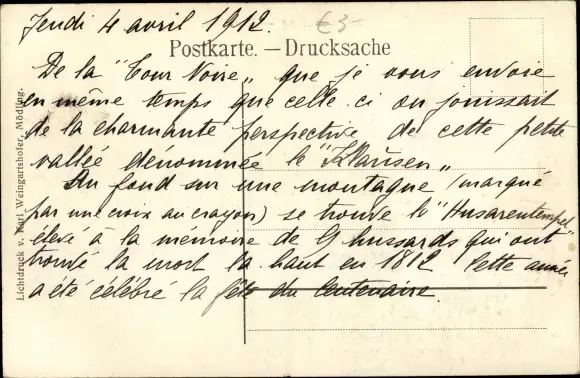 Jeudi 4 avril 1912.
€3-
Postkarte. — Drucksache
De la "Tour Noire„ que je vous envoie
en même temps que celle-ci on jouissait
de la charmante perspective de cette petite
vallée dénommée le "Klausen„
Au fond sur une montagne (marqué
par une croix au crayon) se trouve le "Husarentempel"
élevé à la mémoire de 9 hussards qui ont
trouvé la mort là-haut en 1812 Cette année
a été célébré la fête du Centenaire.
Lichtdruck v. Karl Weingartshofer, Mödling.